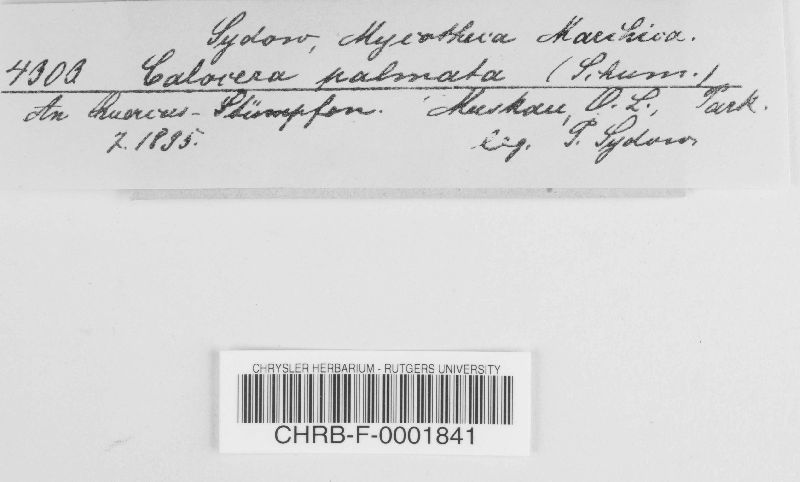 Sydow, Mycotheca Marchica.
4303 Calocera palmata (Schum.)
An Quercus-Stümpfen. Muskau, O. L., Park.
7. 1895. leg. P. Sydow.
CHRYSLER HERBARIUM - RUTGERS UNIVERSITY
CHRB-F-0001841